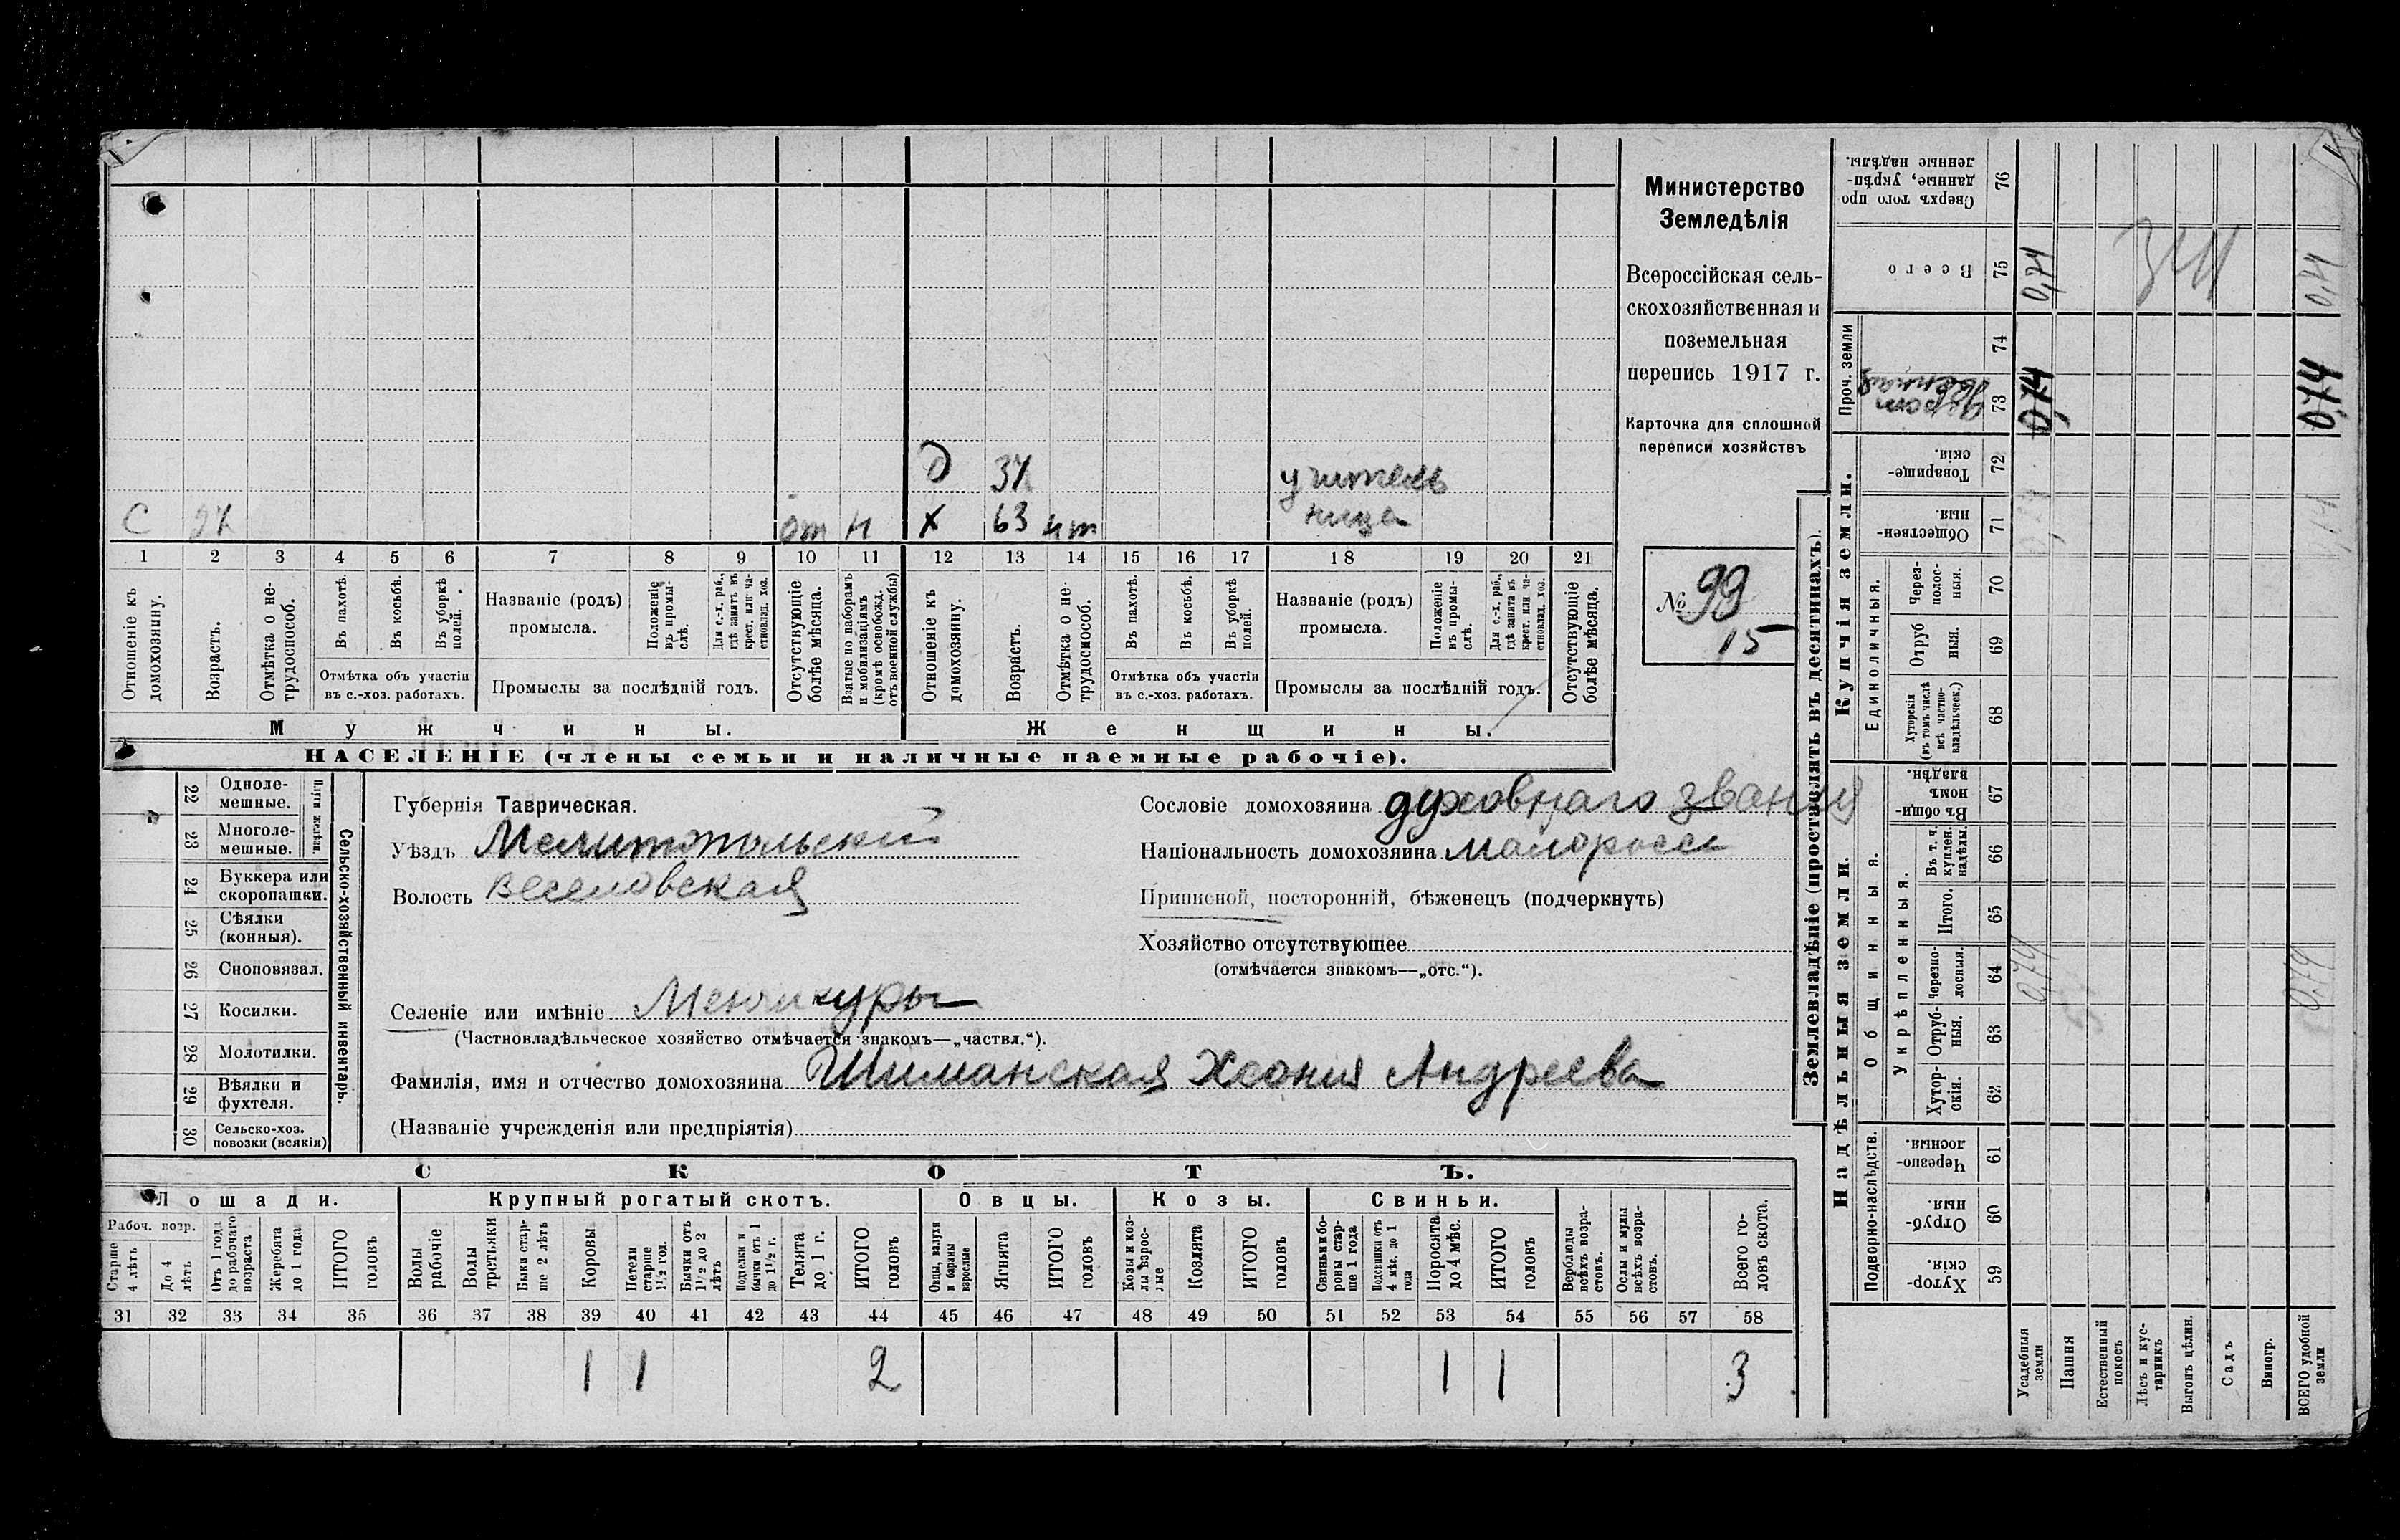 Министерство
Земледѣлія
Всероссійская сель-
скохозяйственная и
поземельная
перепись 1917 г.
Карточка для сплошной
переписи хозяйствъ
№ 99
15
Д 37 учитель
С 27 от н Х 63 нт ница
1 2 3 4 5 6 7 8 9 10 11 12 13 14 15 16 17 18 19 20 21
Отношеніе къ домохозяину.
Возрастъ.
Отмѣтка о не-трудоспособ.
Въ пахотѣ.
Въ косьбѣ.
Въ уборкѣ полей.
Отмѣтка объ участіи
въ с.-хоз. работахъ.
Названіе (родъ)
промысла.
Положеніе въ промы-слѣ.
Для с.-х. раб., гдѣ занятъ въ крест. или ча-стновлад. хоз.
Промыслы за послѣдній годъ.
Отсутствующіе болѣе мѣсяца.
Взятые по наборамъ и мобилизаціямъ (кромѣ освобожд. отъ военной службы)
Отношеніе къ домохозяину.
Возрастъ.
Отмѣтка о не-трудоспособ.
Въ пахотѣ.
Въ косьбѣ.
Въ уборкѣ полей.
Отмѣтка объ участіи
въ с.-хоз. работахъ.
Названіе (родъ)
промысла.
Положеніе въ промы-слѣ.
Для с.-х. раб., гдѣ занята въ крест. или ча-стновлад. хоз.
Промыслы за послѣдній годъ.
Отсутствующіе болѣе мѣсяца.
Мужчины.
Женщины.
НАСЕЛЕНІЕ (члены семьи и наличные наемные рабочіе).
Сельско-хозяйственный инвентарь.
Плуги желѣзн.
22 Однолемешные.
23 Многолемешные.
24 Буккера или скоропашки.
25 Сѣялки (конныя).
26 Сноповязал.
27 Косилки.
28 Молотилки.
29 Вѣялки и фухтеля.
30 Сельско-хоз. повозки (всякія)
Губернія Таврическая.
Уѣздъ Мелитопольский
Волость Веселовская
Сословіе домохозяина духовнаго звания
Національность домохозяина малоросс
Приписной, посторонній, бѣженецъ (подчеркнуть)
Хозяйство отсутствующее
(отмѣчается знакомъ—„отс.“).
Селеніе или имѣніе Менчикуры
(Частновладѣльческое хозяйство отмѣчается знакомъ—„частвл.“).
Фамилія, имя и отчество домохозяина Шиманская Ксения Андреева
(Названіе учрежденія или предпріятія)
СКОТЪ.
Лошади. Крупный рогатый скотъ. Овцы. Козы. Свиньи.
Рабоч. возр.
Старше 4 лѣтъ
До 4 лѣтъ
Отъ 1 года до рабочаго возраста
Жеребята до 1 года
ИТОГО головъ
Волы рабочіе
Волы третьяки
Быки стар-ше 2 лѣтъ
Коровы
Нетели старше 1½ год.
Бычки отъ 1½ до 2 лѣтъ
Подтелки и бычки отъ 1 до 1½ г.
Телята до 1 г.
ИТОГО головъ
Овцы, валухи и бараны взрослые
Ягнята
ИТОГО головъ
Козы и коз-лы взрос-лые
Козлята
ИТОГО головъ
Свиньи и бо-ровы стар-ше 1 года
Подсвинки отъ 4 мѣс. до 1 года
Поросята до 4 мѣс.
ИТОГО головъ
Верблюды всѣхъ возра-стовъ.
Ослы и мулы всѣхъ возра-стовъ.
Всего го-ловъ скота.
31 32 33 34 35 36 37 38 39 40 41 42 43 44 45 46 47 48 49 50 51 52 53 54 55 56 57 58
1 1 2 1 1 3
Землевладѣніе (проставлять въ десятинахъ).
Надѣльныя земли.
Купчія земли.
Проч. земли
Подворно-наслѣдств.
Общинныя.
Укрѣпленныя.
Единоличныя.
Сверхъ того про-данные, укрѣп-ленные надѣлы. 76
Всего 75
74
73
Товарище-скія. 72
Обществен-ныя. 71
Через-полос-ныя. 70
Отруб ныя. 69
Хуторскія (въ томъ числѣ всѣ частно-владѣльческ.) 68
Въ общи-номъ владѣн. 67
Въ т. ч. куплен. надѣлы. 66
Итого. 65
Черезпо-лосныя. 64
Отруб-ныя. 63
Хутор-скія. 62
Черезпо-лосныя. 61
Отруб-ныя. 60
Хутор-скія. 59
Усадебныя земли
Пашня
Естественный покосъ
Лѣсъ и кус-тарникъ
Выгонъ цѣлин.
Садъ
Виногр.
ВСЕГО удобной земли
0,74
0,74
0,74
0,74
0,74
0,74